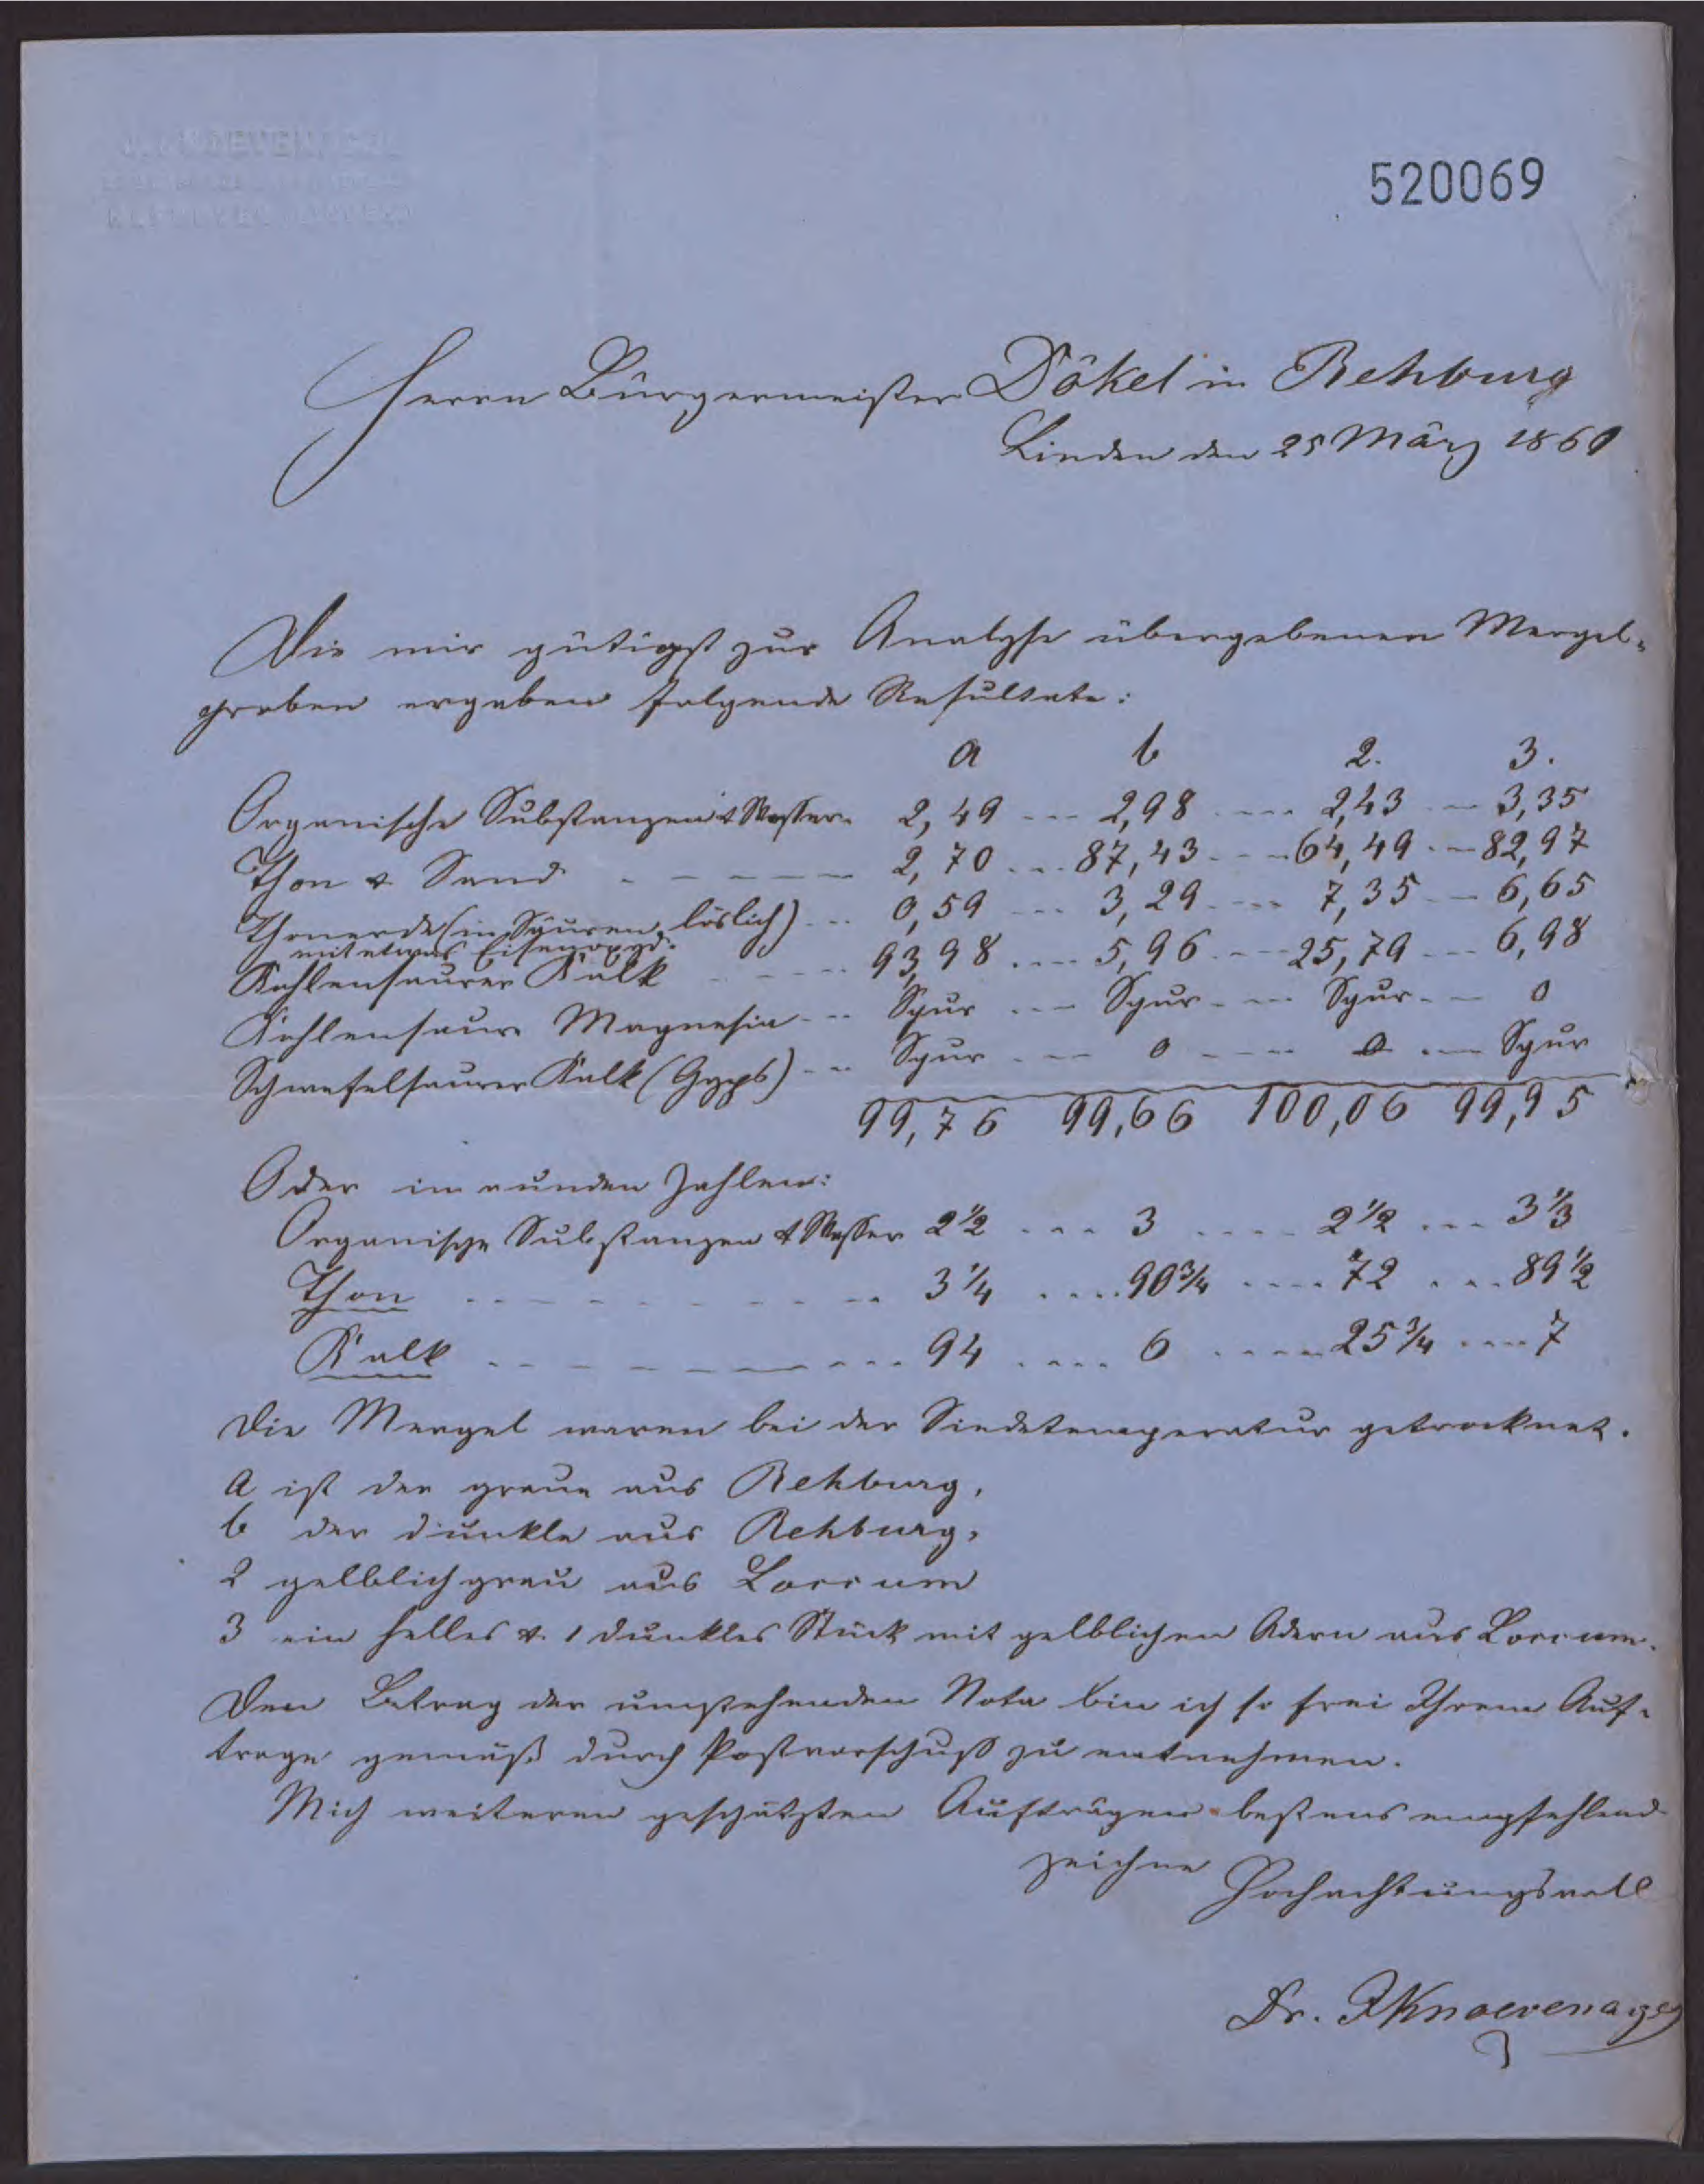 520069
Herrn Bürgermeister Dökel in Rehburg
Linden den 25 März 1860
Die mir gütigst zur Analyse übergebenen Mergel-
proben ergaben folgende Resultate:
a b 2. 3.
Organische Substanzen & Wasser 2,49 --- 2,98 ---- 2,43 -- 3,35
Thon & Sand - - - - - - 2,70 --- 87,43 --- 64,49 -- 82,97
Thonerde (in Säuren löslich) --- 0,59 --- 3,29 ---- 7,35 -- 6,65
mit etwas Eisenoxyd.
Kohlensaurer Kalk - - ---- 93,98 ---- 5,96 --- 25,79 --- 6,98
Kohlensaure Magnesia --- Spur --- Spur - -- Spur - - 0
Schwefelsaurer Kalk (Gyps) --- Spur --- 0 ---- 0 --- Spur
99,76 99,66 100,06 99,95
Oder in runden Zahlen:
Organische Substanzen & Wasser 2 1/2 ... 3 .... 2 1/2 ... 3 1/3
Thon - - - - - - - - - - 3 1/4 .... 90 3/4 ---- 72 ... 89 1/2
Kalk - - - - - - - - - - 94 .... 6 ----- 25 3/4 ---- 7
Die Mergel waren bei der Siedetemperatur getrocknet.
a ist der graue aus Rehburg,
b der dunkle aus Rehburg,
2 gelblichgrau aus Loccum
3 ein helles & 1 dunkles Stück mit gelblichen Adern aus Loccum.
Den Betrag der umstehenden Nota bin ich so frei Ihrem Auf-
trage gemäß durch Postvorschuß zu entnehmen.
Mich weiteren geschätzten Aufträgen bestens empfehlend
zeichne Hochachtungsvoll
Dr. F Knoevenagel